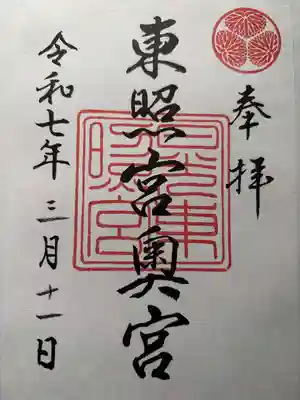 奉拝
東照宮奥宮
令和七年三月十一日